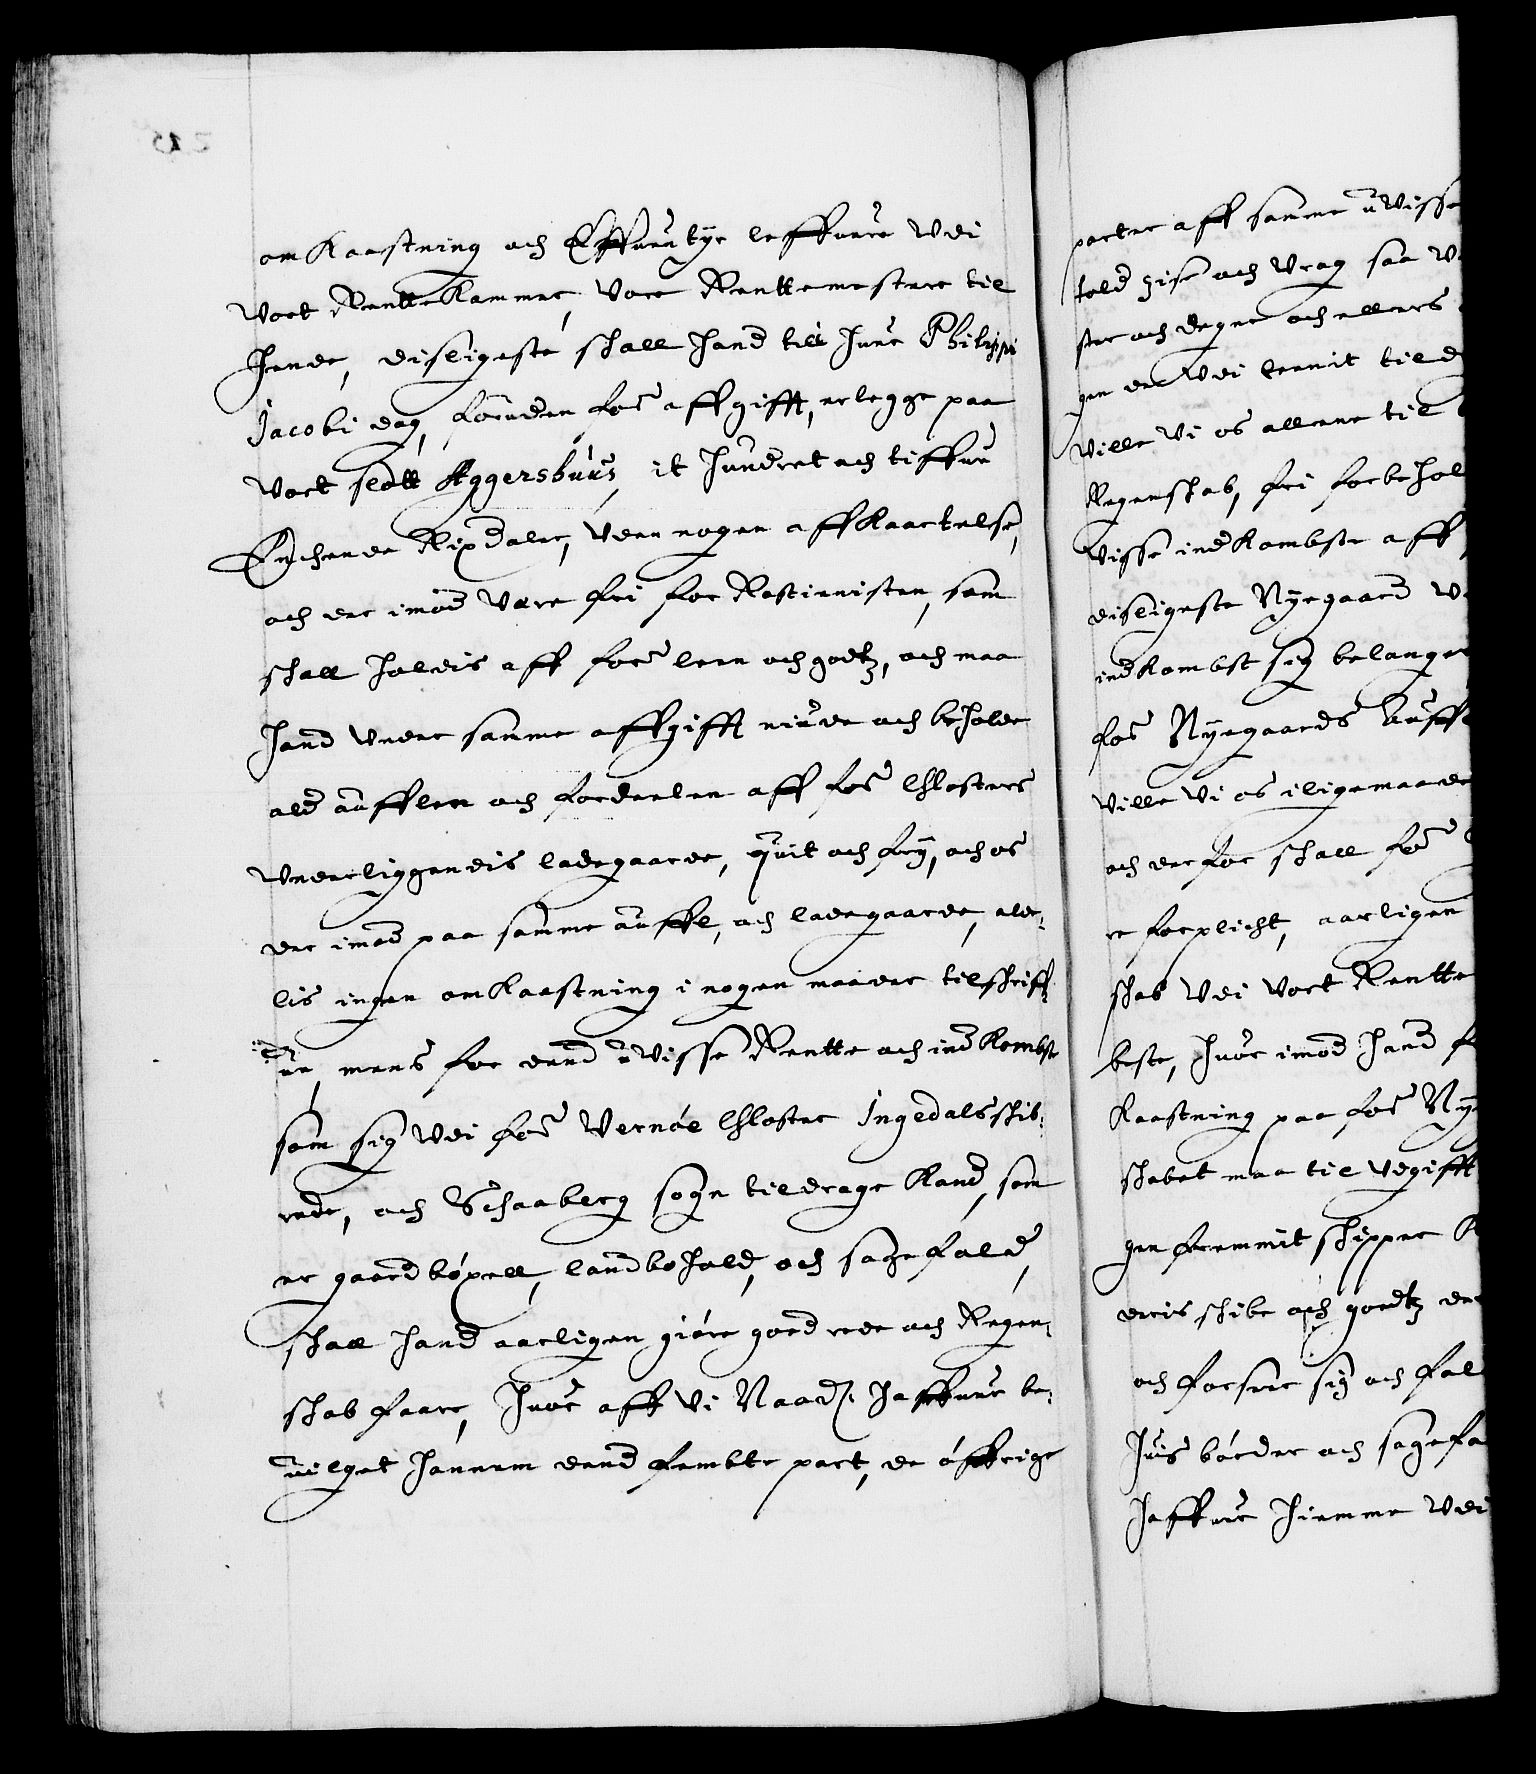 omkaastning och Effuentyr leffuere vdi
vort Renttekammer, vore Renttemestere til
hende, disligeste schall hand till huer Philippi
Jacobi dag, foruden for: affgifft, erlegge paa
vort slott Aggershuus, it hundret och tiffue
Enchende Rixdaler, vden nogen affkaartelse,
och der imod være fri for Rostienisten, som
schall holdis aff for: leen och godtz, och maa
hand vnder samme affgifft niude och beholde
ald aufflen och fordeelen aff for: Closters
vnderliggendis ladegaarde, quit och frij, och os
der imod paa samme auffl, och ladegaarde, alde-
lis ingen omkaastning i nogen maader tilschriff-
ue, mens for dend uvisse Rentte och indkombst
som sig vdi for: Vernöe Closter Ingedals schib-
rede, och Schaaberg sogn tildrage kand, som
er gaardböxell, landbohold, och sagefald,
schall hand aarligen giöre goed rede och Regen-
schab faare, huor aff vi Naad: haffuer be-
uilget hannem dend fembte part, de öffrige
parter aff samme uvisse
told zise och vrag saa v
ster och degne och ellers
gen der vdi leenit tild
ville vi os allene til
Regenschab, fri forbehol
visse indkombste aff
disligeste Nyegaard v
indkombst sig belanger
for: Nyegaards auffl
ville vi os iligemaade
och derfor schall for:
re forplicht, aarligen
schab vdi vort Rentte
beste, huor imod hand f
kaastning paa for: Ny
schabet maa til vdgifft
gen fremmit schipper k
deris schibe och goedtz der
och forsee sig och fal
huis börder och sagefa
haffuer hiemme vdi
215